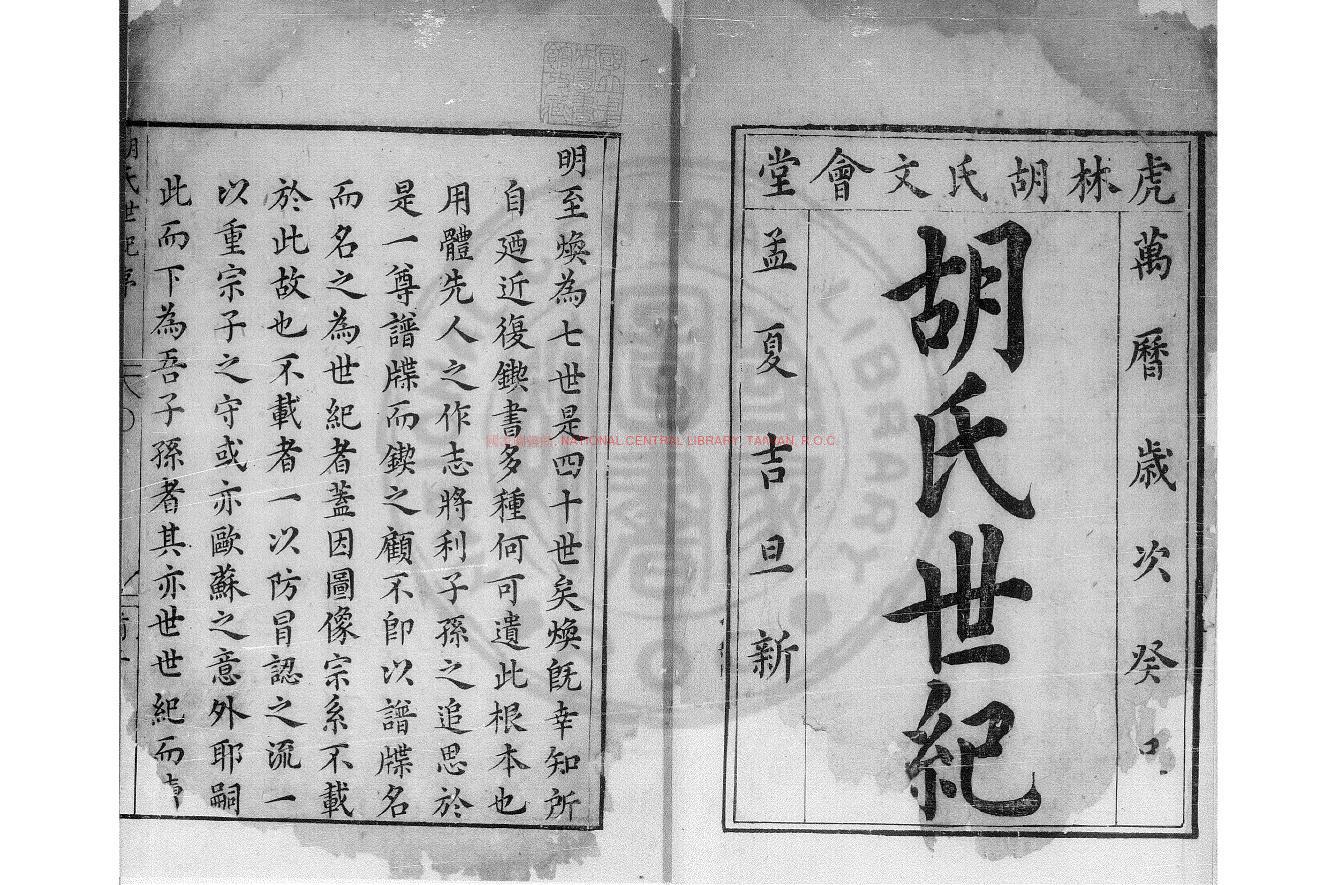 虎林胡氏文會堂
萬曆歲次癸
胡氏世紀
孟夏吉旦新
明至煥為七世是四十世矣煥旣幸知所
自廼近復鍥書多種何可遺此根本也
用體先人之作志將利子孫之追思於
是一尊譜牒而鍥之顧不卽以譜牒名
而名之為世紀者蓋因圖像宗系不載
於此故也不載者一以防冒認之流一
以重宗子之守或亦歐蘇之意外耶嗣
此而下為吾子孫者其亦世世紀而
胡氏世紀序
NATIONAL CENTRAL LIBRARY, TAIWAN, R.O.C